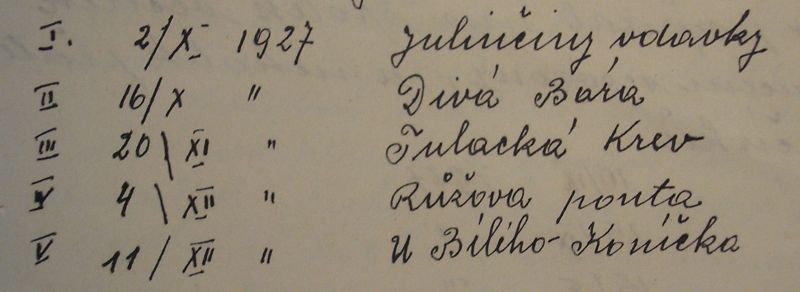 I. 2/X 1927 Julinčiny vdavky
II 16/X " Divá Bára
III 20\XI " Tulacká Krev
IV 4\XII " Růžova pouta
V 11/XII " U Bílího Koníčka